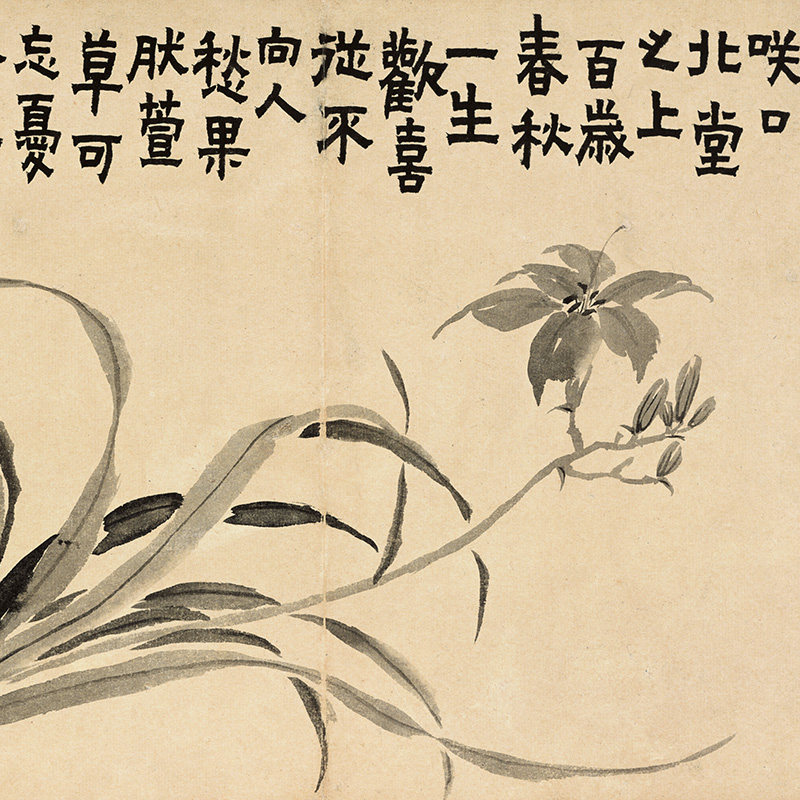 咲口
北堂
之上
百歲
春秋
一生
歡喜
從不
向人
愁果
肰萱
草可
忘憂